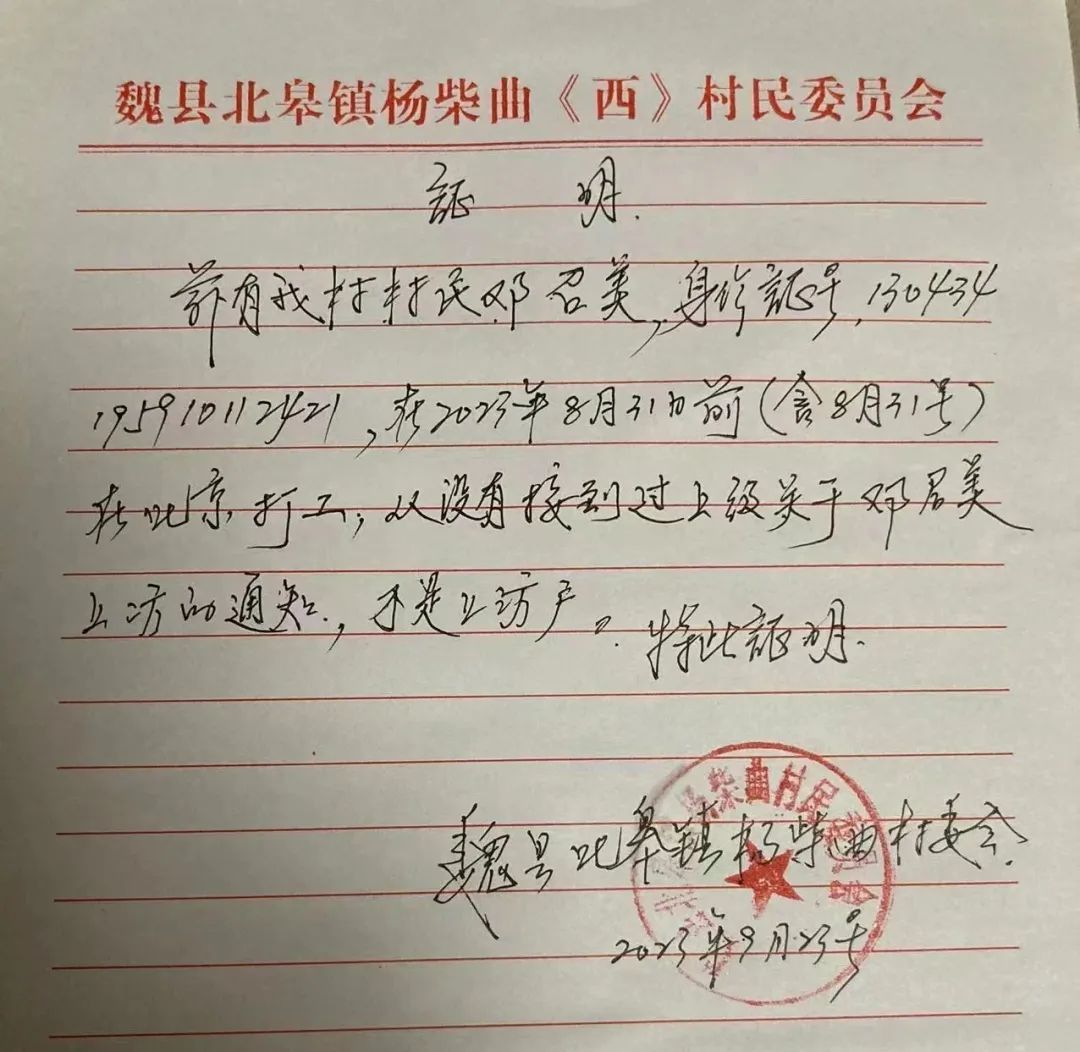 魏县北皋镇杨柴曲《西》村民委员会
証 明.
兹有我村村民邓召美,身份証号,130434
195910112421,在2023年8月31日前(含8月31号)
在北京打工,从没有接到过上级关于邓召美
上访的通知.,不是上访户。特此証明.
柴曲村民委员会
魏县北皋镇杨柴曲村委会.
2023年9月23号